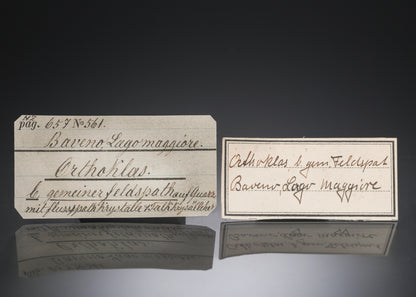 pag. 657 No 561.
Baveno, Lago maggiore.
Orthoklas.
b. gemeiner Feldspath auf Quarz
mit flussspath Krystalle
Orthoklas b. gem. Feldspat
Baveno, Lago Maggiore